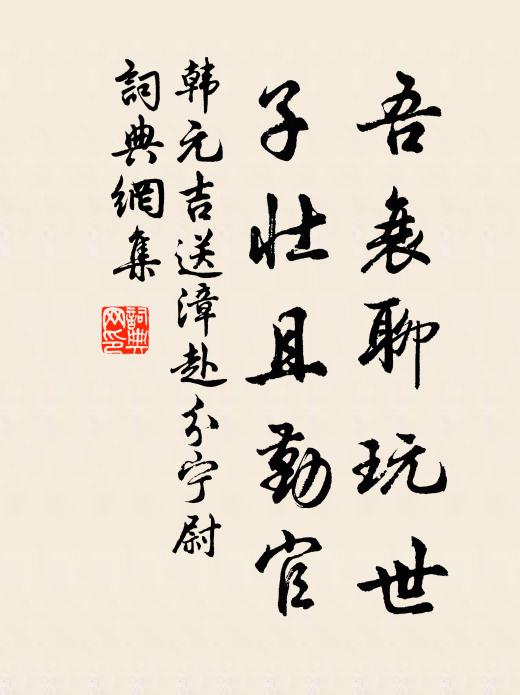 吾衰聊玩世
子壮且勤官
韩元吉送漳赴分宁尉
詞典網集
詞典网印